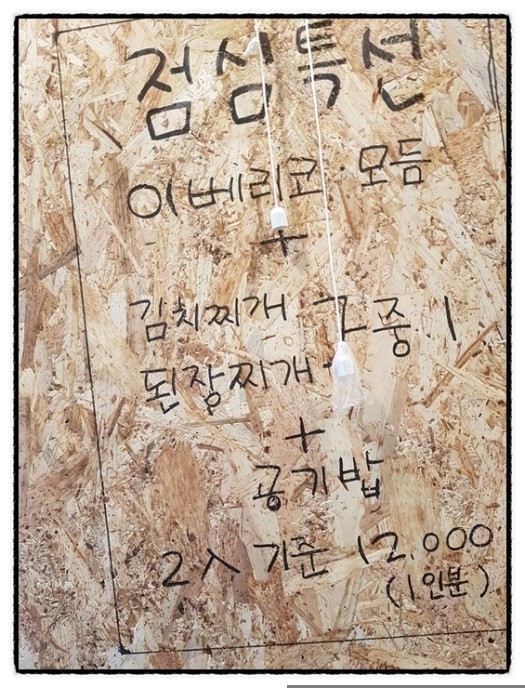 점심특선
이베리코 모듬
+
김치찌개
ㄱ중 1
된장찌개
+
공기밥
2人 기준 12.000
(1인분)